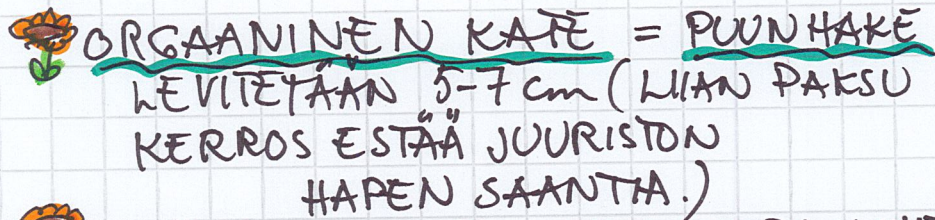 ORGAANINEN KATE = PUUNHAKE
LEVITETÄÄN 5-7 cm (LIIAN PAKSU
KERROS ESTÄÄ JUURISTON
HAPEN SAANTIA.)